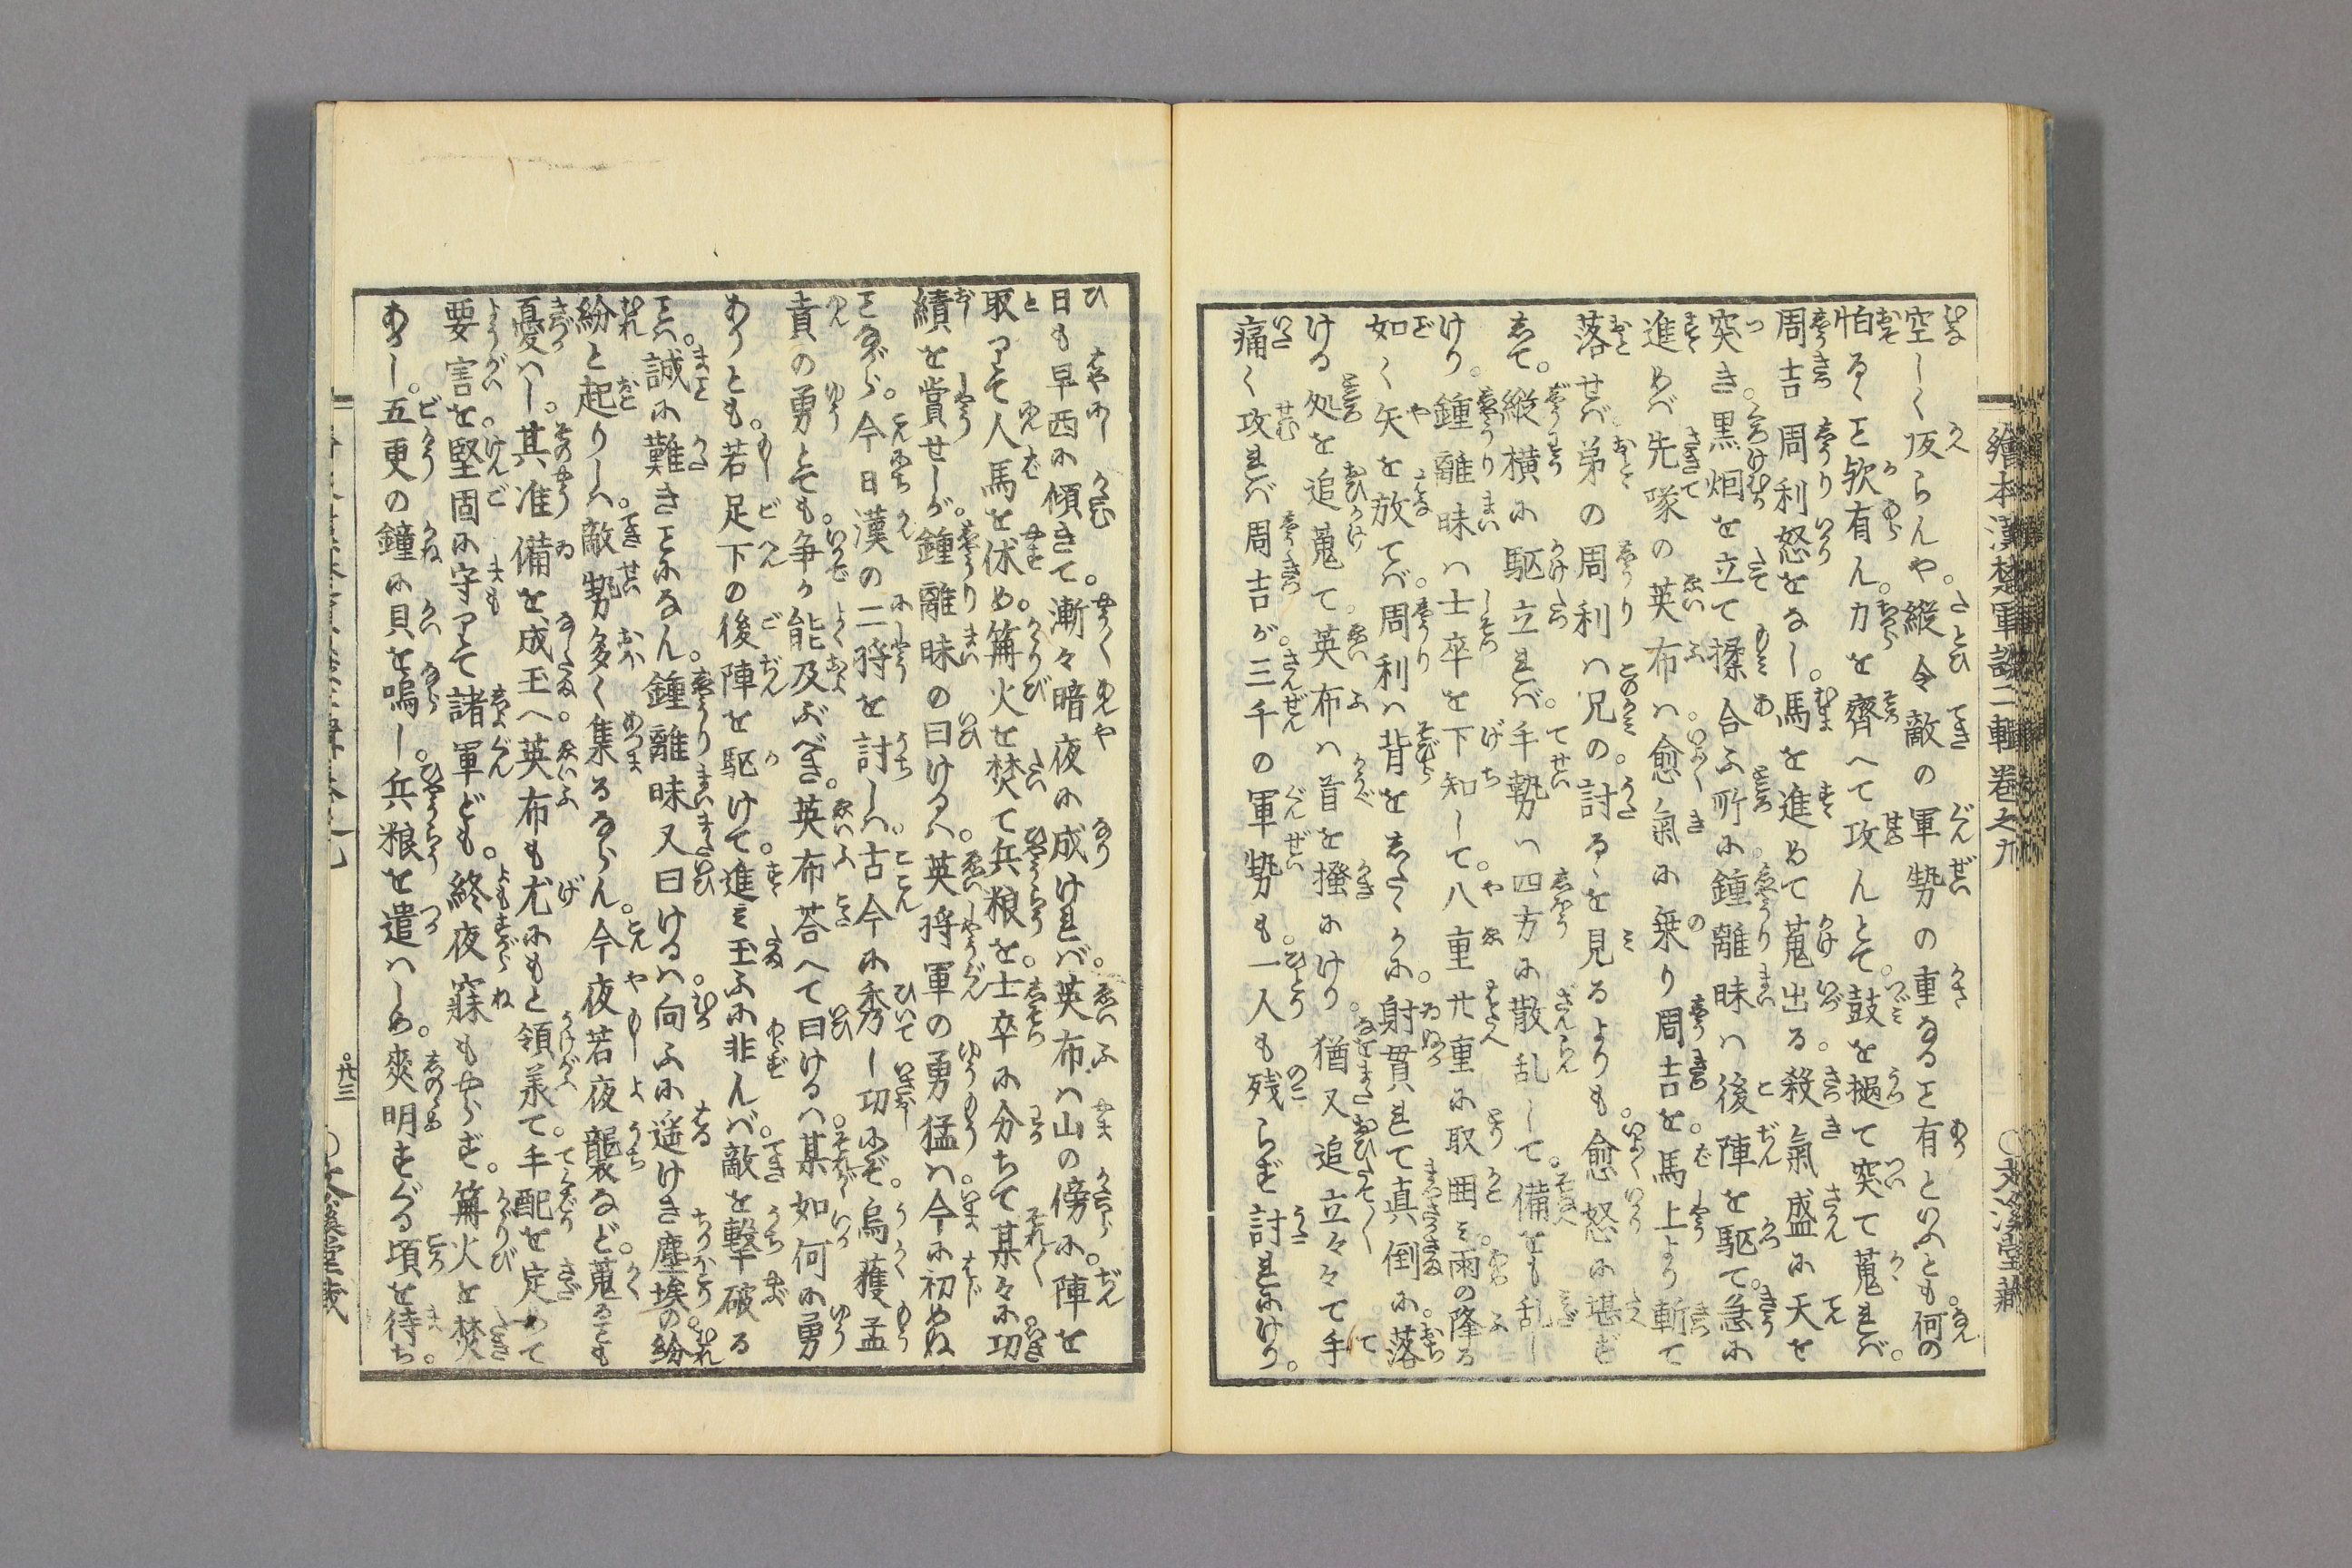 空しく皈らんや。縦令敵の軍勢の重なること有といふとも。何の
怕るゝこと欤有ん。力を齊へて攻んとて。鼓を撾て突て蒐れバ。
周吉周利怒をなし。馬を進めて蒐出る。殺氣盛に天を
突き。黒烟を立て揉合ふ所に。鍾離昧ハ後陣を駆て。急に
進めバ先隊の英布ハ。愈氣に乗り周吉を。馬上より斬て
落せバ。弟の周利ハ兄の。討るゝを見るよりも。愈怒に堪ず
して。縦横に駆立れバ。手勢ハ四方に散乱して。備をも乱し
けり。鍾離昧ハ士卒を下知して。八重廿重に取囲ミ。雨の降る
如く矢を放てバ。周利ハ背をしたゝかに。射貫れて真倒に。落
ける処を追蒐て。英布ハ首を掻にけり。猶又追立々々て手
痛く攻れバ周吉が。三千の軍勢も。一人も残らず討れにけり。
繪本漢楚軍談二輯巻之九
日も早西に傾きて。漸々暗夜に成けれバ。英布ハ山の傍に。陣を
取りて人馬を休め。篝火を焚て兵粮を。士卒に分ちて某々に。功
績を賞せしが。鍾離昧の曰けるハ。英將軍の勇猛ハ。今に初めぬ
ことながら。今日漢の二將を討しハ。古今に秀し功にぞ。烏獲孟
賁の勇とても。争か能及ぶべき。英布荅へて曰けるハ。某如何に勇
ありとも。若足下の後陣を駆けて。進ミ玉ふに非んバ。敵を撃破る
ことハ。誠に難きことになん。鍾離昧又曰けるハ。向ふに遥けき塵埃の。紛
紛と起りしハ。敵勢多く集るならん。今夜若夜襲など。蒐るとも
憂へし。其准備を成玉へ。英布も尤にもと領掌て。手配を定めて
要害を。堅固に守りて諸軍ども。終夜寐もやらず。篝火を焚
あかし。五更の鐘に貝を鳴し。兵粮を遣ハしめ。爽明すぐる頃を待ち。
廿三